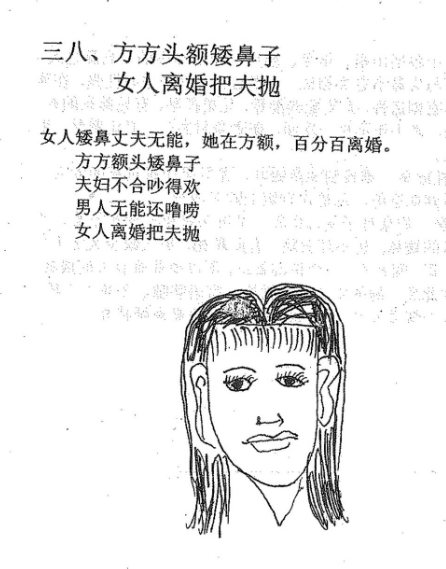 三八、方方头额矮鼻子
女人离婚把夫抛
女人矮鼻丈夫无能，她在方额，百分百离婚。
方方额头矮鼻子
夫妇不合吵得欢
男人无能还噜唠
女人离婚把夫抛